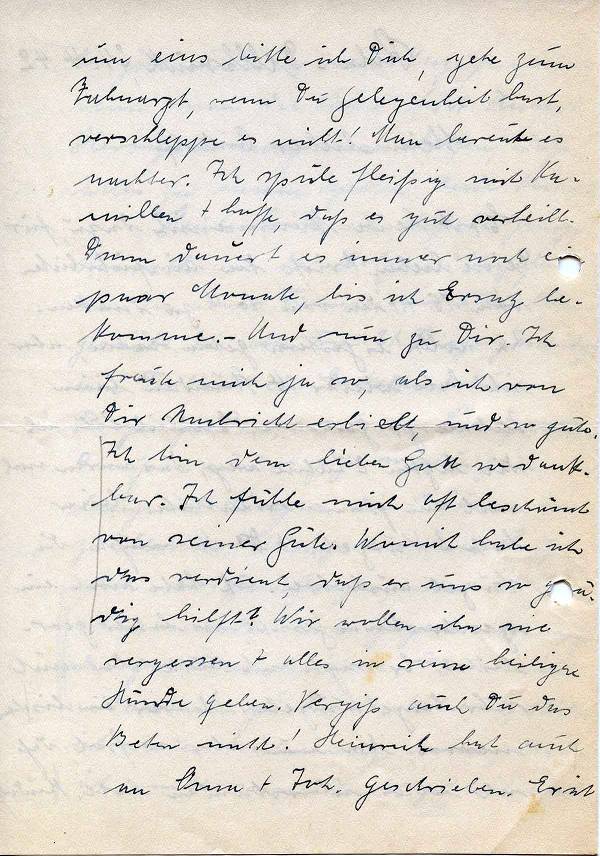 um eins bitte ich Dich, gehe zum
Zahnarzt, wenn Du Gelegenheit hast,
verschleppe es nicht! Man bereut es
nachher. Ich spüle fleißig mit Ka-
millen + hoffe, daß es gut verheilt.
Dann dauert es immer noch ein
paar Monate, bis ich Ersatz be-
komme. – Und nun zu Dir. Ich
freute mich ja so, als ich von
Dir Nachricht erhielt, und so gute.
Ich bin dem lieben Gott so dank-
bar. Ich fühle mich oft beschämt
von seiner Güte. Womit habe ich
das verdient, daß er uns so gnä-
dig hilft? Wir wollen ihn nie
vergessen + alles in seine heiligen
Hände geben. Vergiß auch Du das
Beten nicht! Heinrich hat auch
an Anna + Joh. geschrieben. Er ist